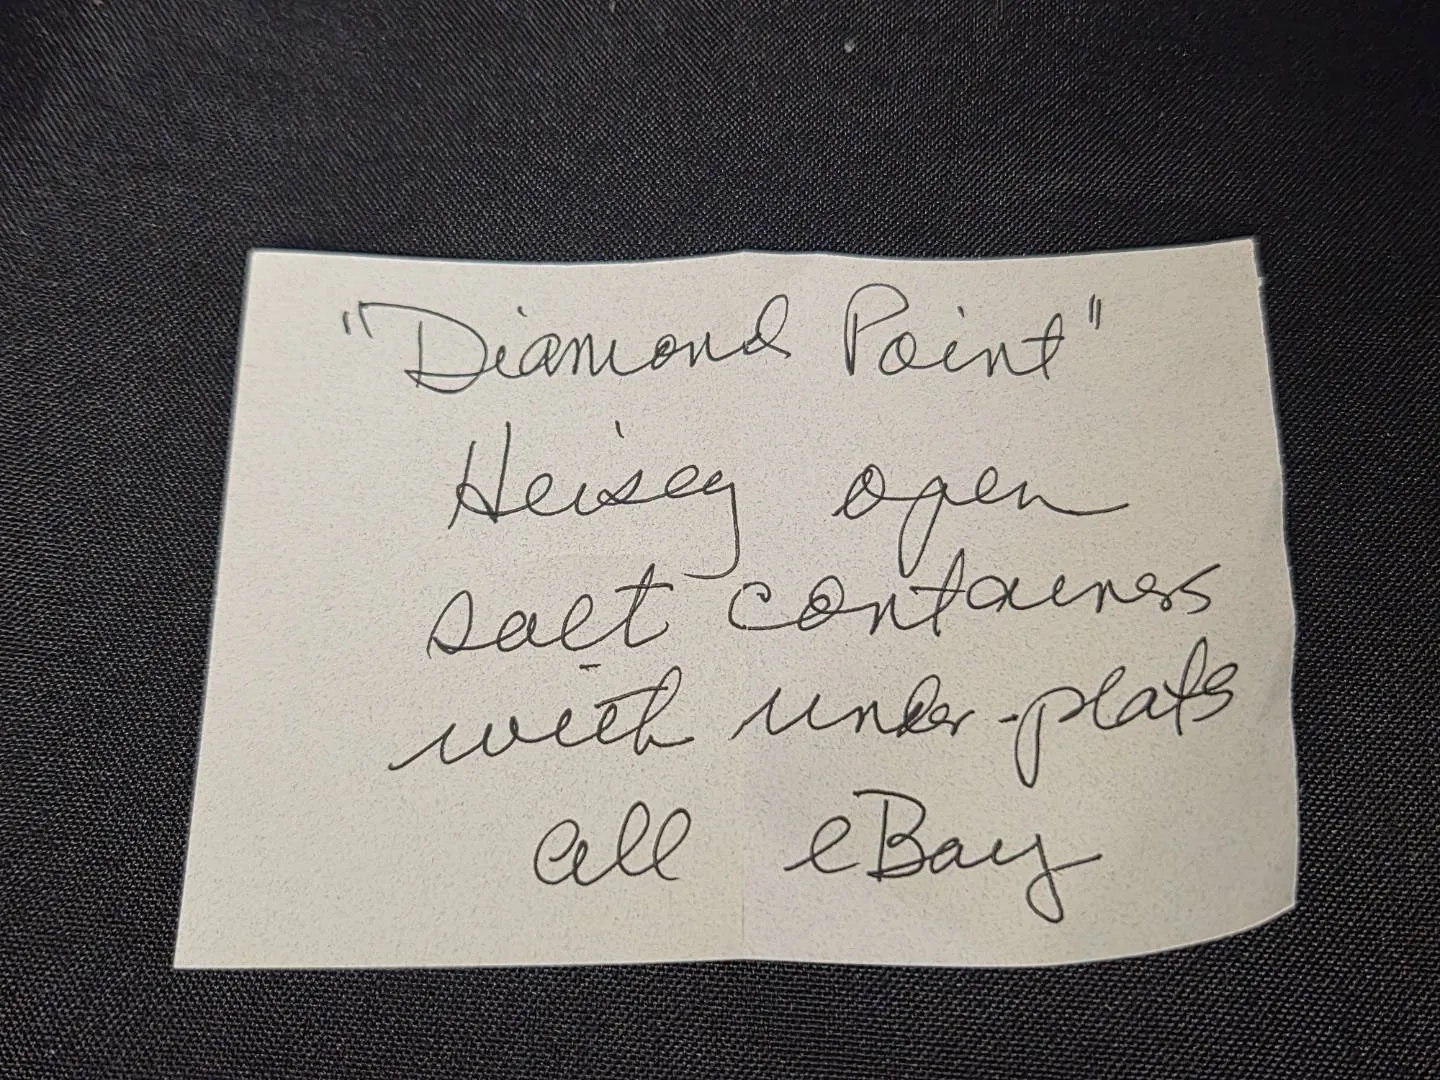 "Diamond Point"
Heisey open
salt containers
with under-plats
all eBay